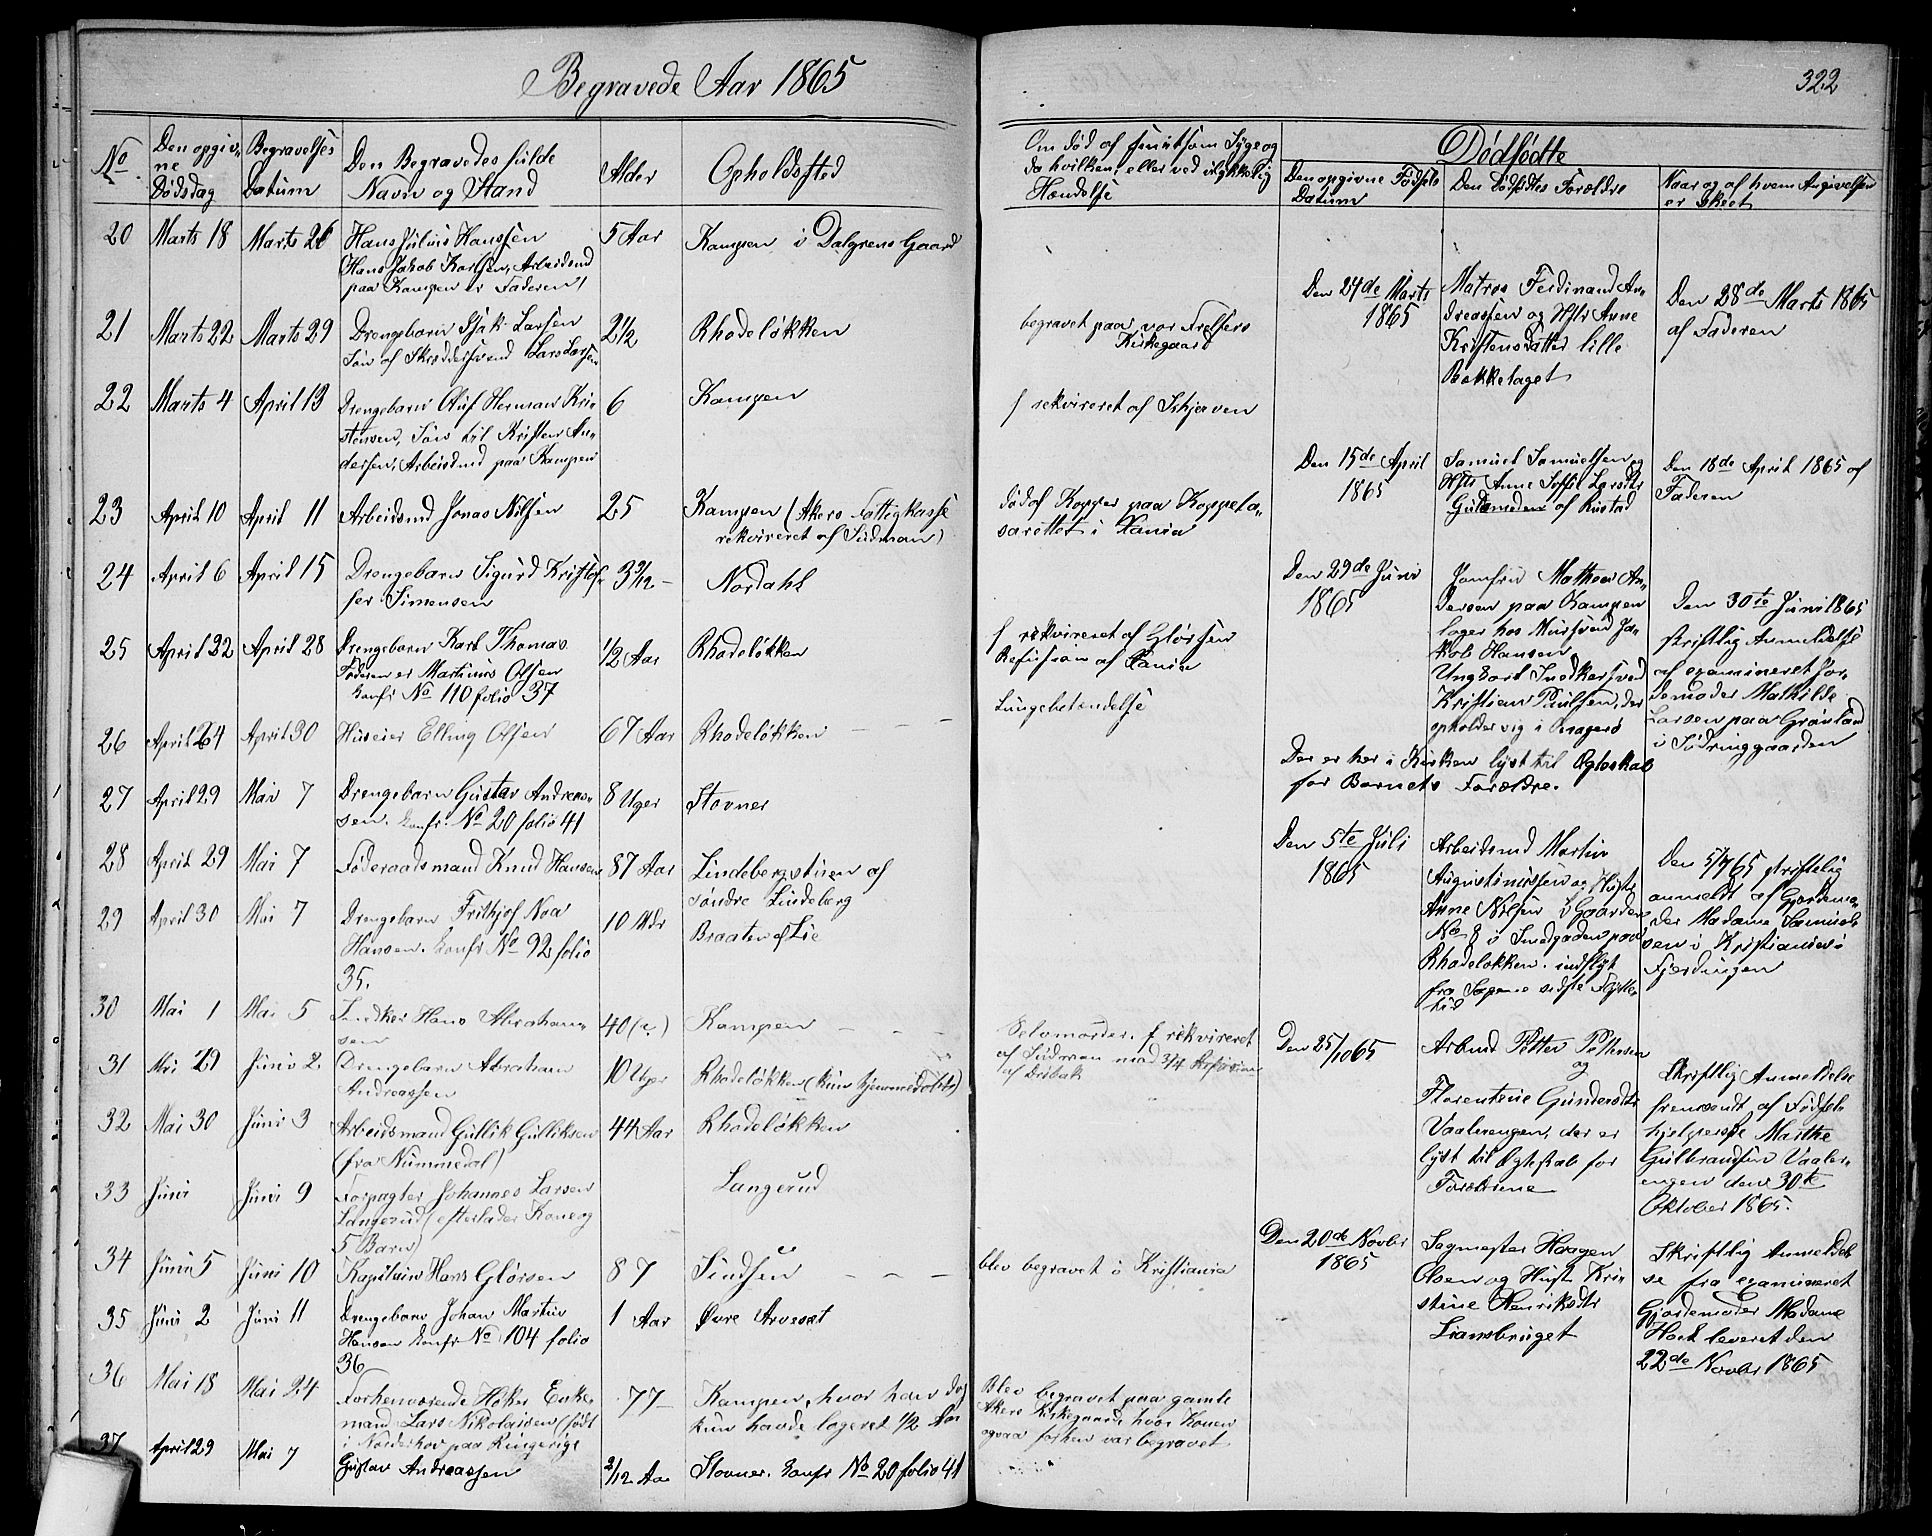 Begravede Aar 1865
No.
Den opgiv-
ne
Dødsdag
Begravelses
Datum
Den Begravedes fulde
Navn og Stand
Alder
Opholdssted
20 Marts 18 Marts 26 Hans Julius Hanssen 5 Aar Kampen i Dalgrens Gaard
(Hans Jakob Karlsen, Arbeidsmd
paa Kampen er Faderen)
21 Marts 22 Marts 29 Drengebarn Isak Larsen 2 1/2 Rhodeløkken
Søn af Skræddersvend Lars Larsen
22 Marts 4 April 13 Drengebarn Oluf Herman Kri- 6 Kampen
stensen, Søn til Kristen An-
dersen, Arbeidsmd paa Kampen
23 April 10 April 11 Arbeidsmd Jonas Nilsen 25 Kampen (Akers Fattigkasse
rekvireret af Sudman)
24 April 6 April 15 Drengebarn Sigurd Kristof- 3 3/12 - Nordahl
fer Simensen
25 April 22 April 28 Drengebarn Karl Thomas 1/2 Aar Rhodeløkken
Faderen er Martinus Olsen
konfr No 110 folio 37
26 April 24 April 30 Huseier Elling Olsen 67 Aar Rhodeløkken
27 April 29 Mai 7 Drengebarn Gustav Andreas- 8 Uger Stovner
sen. konfr. No 20 folio 41
28 April 29 Mai 7 Føderaadsmand Knud Hansen 87 Aar Lindebergstuen af
søndre Lindeberg
29 April 30 Mai 7 Drengebarn Frithjof Noa 10 Mdr Braaten af Lie
Hansen. konfr No 92 folio
35.
30 Mai 1 Mai 5 Snedker Hans Abraham- 40 Kampen
sen
31 Mai 29 Juni 2 Drengebarn Abraham 10 Uger Rhodeløkken (kun hjemmedøbt)
Andreassen
32 Mai 30 Juni 3 Arbeidsmand Gullik Gulliksen 44 Aar Rhodeløkken
(fra Nummedal)
33 Juni Juni 9 Forpagter Johannes Larsen Langerud
Langerud (efterlader Kone og
5 Børn)
34 Juni 5 Juni 10 Kaptein Hans Glørsen 87
35 Juni 2 Juni 11 Drengebarn Johan Martin 1 Aar Øvre Arvesæt
Hansen konfr No 104 folio
36
36 Mai 18 Mai 24 Forhenværende Høker Enke- 77 Kampen, hvor han dog
mand Lars Nikolaisen (født kun havde logeret 1/2 Aar
i Norderhov paa Ringerige
37 April 29 Mai 7 Gustav Andreassen 2/12 Aar Stovner. konfr No 20 folio 41
322
Om død af smitsom Syge og
da hvilken, eller ved ulykkelig
Hændelse
Dødfødte
Den opgivne Fødsels
Datum
Den Dødfødtes Forældre
Naar og af hvem Angivelsen
er skeet
begravet paa vor Frelsers
Kirkegaard
f rekvireret af Skjerven
død af Kopper paa Koppela-
sarettet i Xania
f rekvireret af Glørsen
Refusion af Xania
Lungebetændelse
Selvmorder. f rekvireret
af Sudman mod 3/4 Refusion
af Drøbak
blev begravet i Kristiania
Blev begravet paa gamle
Akers Kirkegaard, hvor Konen
ogsaa forhen var begravet
Den 24de Marts
1865
Matros Ferdinand An-
dreassen og Hstr Anne
Kristensdatter lille
Bækkelaget
Den 28de Marts 1865
af Faderen
Den 15de April
1865
Samuel Samuelsen og
Hstr Anne Sofie Larsdtr
af Rustad
Den 18de April 1865 af
Faderen
Den 29de Juni
1865
Jomfru Mathea An-
dersen paa Kampen
loger hos Mursvend Ja-
kob Hansen
Ungkarl Snedkersvend
Kristian Paulsen, der
opholder sig i Kragerø
Den 30te Juni 1865
skriftlig Anmeldelse
af examineret Jor-
demoder Mathilde
Larsen paa Grønland
i Sødringgaarden
Der er her i Kirken lyst til Ægteskab
for Barnets Forældre.
Den 5te Juli
1865
Arbeidsmd Martin
Augustinussen og Hustr
Anne Nilsen i Gaarden
No 8 i Smedgaden paa
Rhodeløkken. indflyt
fra sidste Flytte-
tid
Den 5/7 65 skriftelig
anmeldt af Gjordemo-
der Madame Samuel-
sen i Kristiania i
Fjerdingen
Den 25/10 65
Arbmd Petter Pettersen
og
Florentine Gundersdtr
Vaalerengen, der er
lyst til Ægteskab for
Forældrene
Skriftlig Anmeldelse
fremsendt af Fødsels-
hjelperske Marthe
Gulbrandsen Vaaler-
engen den 30te
Oktober 1865.
Den 20de Novbr
1865
Sagmester Haagen
Olsen og Hustr Kri-
stine Henriksdtr
Liansbruget
Skriftlig Anmeldel-
se fra examineret
Gjordemoder Madame
Høck leveret den
22de Novbr 1865